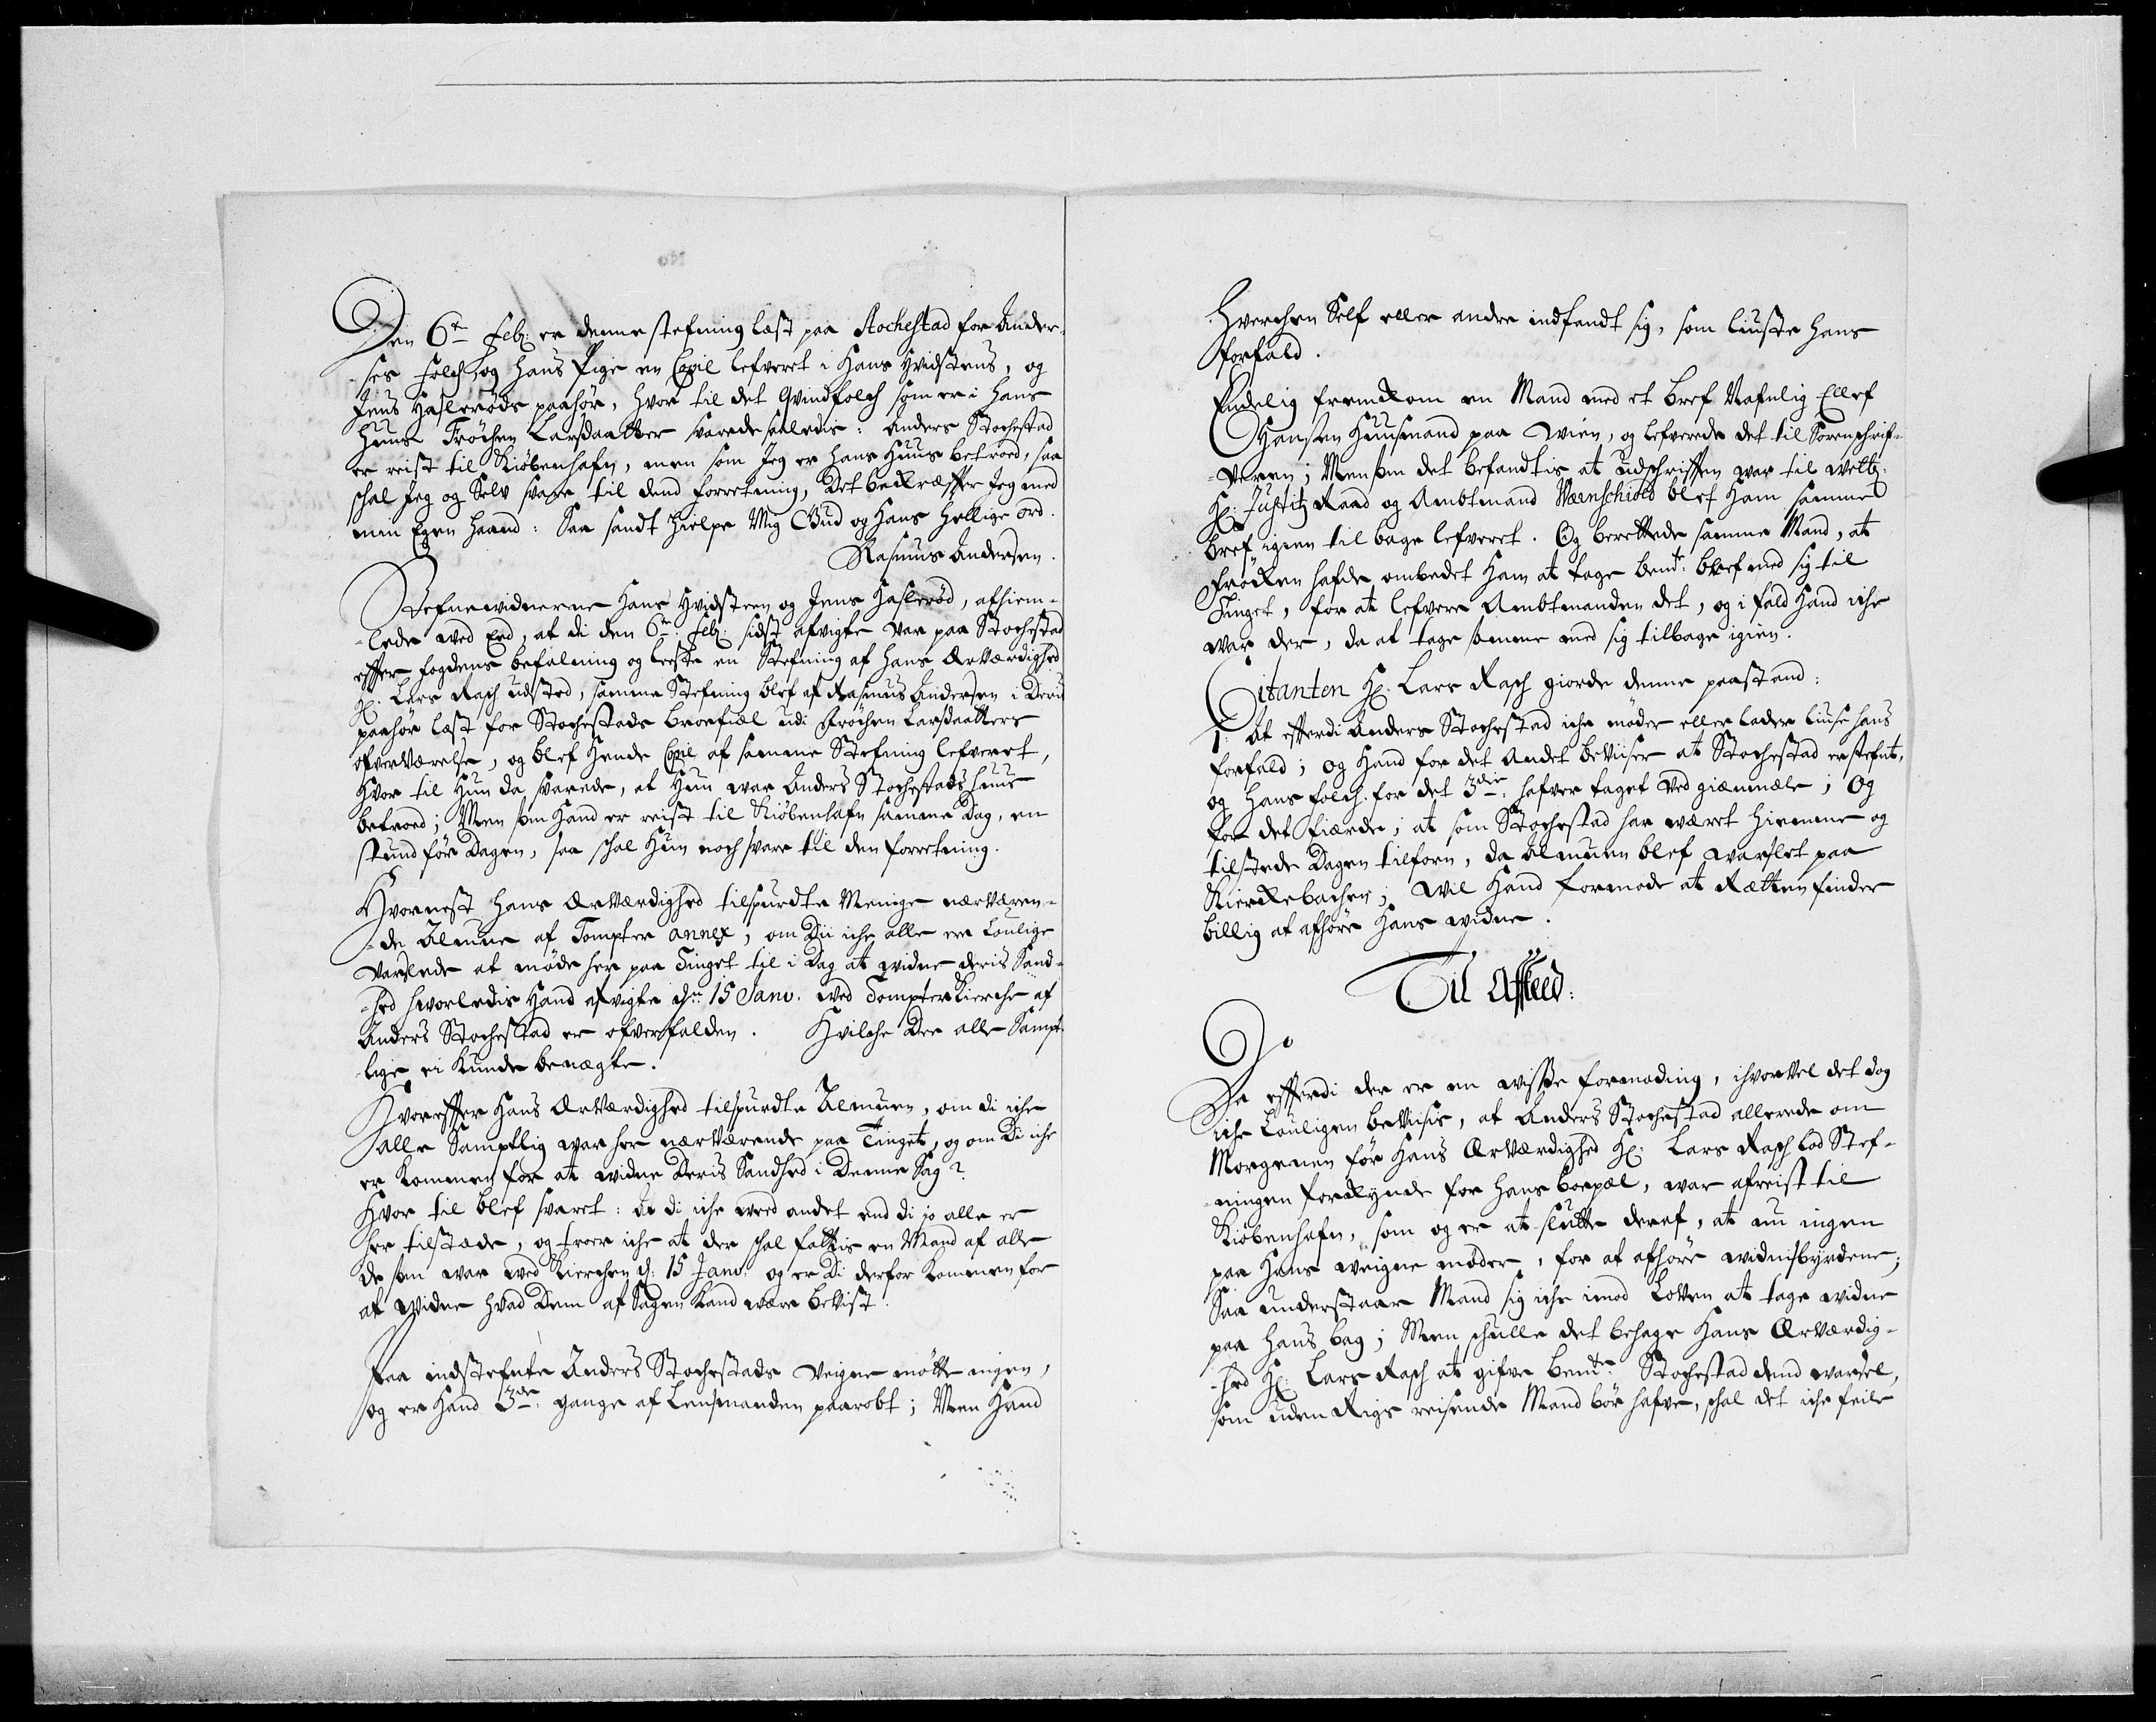 Den 6te Feb: er denne stefning læst paa Stochestad for Ander-
ses folch, og hans Pige en Copie lefveret i Hans Hvidsteens, og
Jens Haslerøds paahør, hvor til det Qvindfolch som er i hans
Huus Frøchen Larsdaatter svarede saaledis: Anders Stochestad
er reist til Kiøbenhafn, men som Jeg er hans Huus betroed, saa
schal Jeg og Selv svare til dend forretning, Det bekræffter Jeg med
min Egen haand: Saa sandt hielpe Mig Gud og Hans Hellige ord.
Rasmus Andersen.
Stefnewidnerne Hans Hvidsteen og Jens Haslerød, afhiem-
lede med Eed, at di den 6te Feb: sidst afvigte var paa Stochestad
effter fogdens befalning og leeste en Stefning af Hans ærværdighed
Hr: Lars Rasch udsted, samme Stefning blef af Rasmus Andersen i Deris
paahør læst for Stochestads broefiæl udi Frøchen Larsdaatters
ofverværelse, og blef Hende Copie af samme Stefning lefveret,
Hvor til Hun da svarede, at Hun war Anders Stochestads huus
betroed; Men som Hand er reist til Kiøbenhafn samme Dag, en
stund før Dagen, saa schal Hun noch svare til den forretning.
Hvornest Hans ærværdighed tilspurdte Menige nærværen-
de Almue af Tompter annex, om Dii iche alle ere Loulige
varslede at møde her paa Tinget til i Dag at widne deris Sand-
hed hvorledis Hand afvigte dn 15 Janv. ved Tompter Kierche af
Anders Stochestad er ofverfalden. Hvilche Dee alle Sampt-
lige ei kunde benægte.
Hvoreffter Hans ærværdighed tilspurdte Almuen, om di iche
alle Samptlig war her nærværende paa Tinget, og om Di iche
er kommen for at widne Deris Sandhed i Denne Sag?
Hvor til blef svaret: At di iche weed andet end di jo alle er
her tilstæde, og troer iche at der schal fattis en Mand af alle
de som war ved Kierchen d: 15 Janv: og er Di derfor kommen for
at Widne hvad Dem af Sagen kand være bevist.
Paa indstefnte Anders Stochestads veigne møtte ingen,
og er Hand 3de gange af Lensmanden paarobt; Men Hand
Hverchen Self eller andre indfandt sig, som liuste hans
forfald.
Endelig fremkom en Mand med et bref Nafnlig Ellef
Hansen Huusmand paa Wiin, og lefverede det til Sorenschrif-
veren; Men som det befandtis at udschrifften war til weltb:
Hr: Justitz Raad og Ambtmand Wærnschiold blef Ham samme
bref igien til bage lefveret. Og berettede samme Mand, at
Frøken hafde ombedet Ham at tage bemte: bref med sig til
Tinget, for at lefvere Ambtmanden det, og i fald Hand iche
war der, da at tage samme med sig tilbage igien.
Citanten Hr: Lars Rasch giorde denne paastand:
1: At efterdi Anders Stochestad iche møder eller lader liuse hans
forfald; og Hand for det Andet bevisser at Stochestad er stefnt,
og hans folch for det 3die: hafver taget ved giænmæle; Og
for det fierde; at som Stochestad har været hiemme og
tilstede Dagen tilforn, da Almuen blef warslet paa
Kierkebachen; Wil Hand formode at Rætten finder
billig at afhøre Hans widne.
Til Affsked:
Jo
Da effterdi der er en wisse formoding, ihvorvel det dog
iche Louligen beviisis, at Anders Stochestad allerede om
Morgenen før Hans ærværdighed Hr: Lars Rasch lod Stef-
ningen forkynde for hans boepæl, war afreist til
Kiøbenhafn, som og er at slutte deraf, at nu ingen
paa Hans weigne møder, for at afhøre widnisbyrdene;
Saa understaar Mand sig iche imod Loven at tage widne
paa hans bag; Men schulle det behage Hans ærværdig-
hed Hr: Lars Rasch at gifve bemte: Stochestad dend warsel,
som uden Rigs reisende Mand bør hafve, schal det iche feile